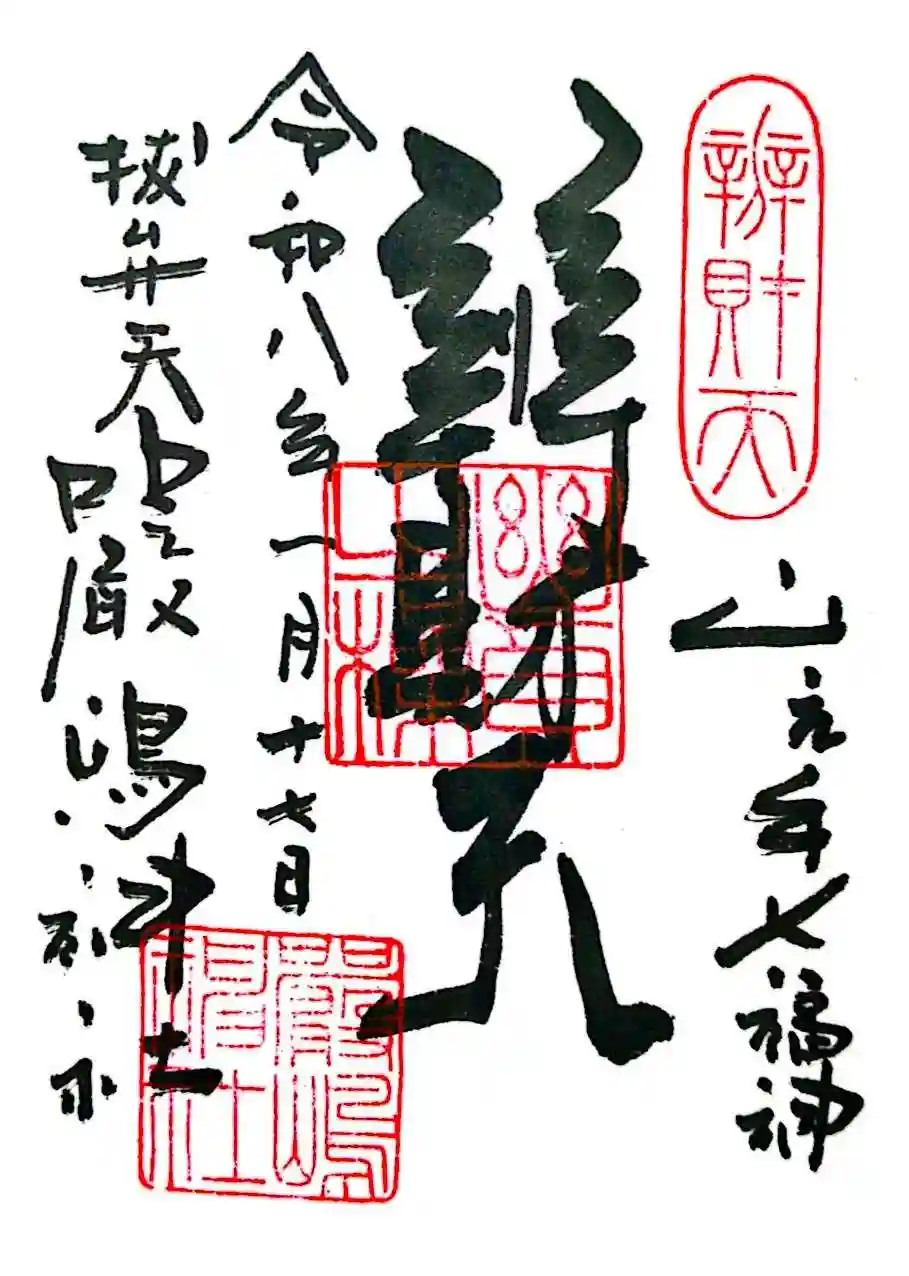 辨財天
山之手七福神
辨財天
令和八年一月十七日
抜弁天嚴嶋神社
嚴嶋神社